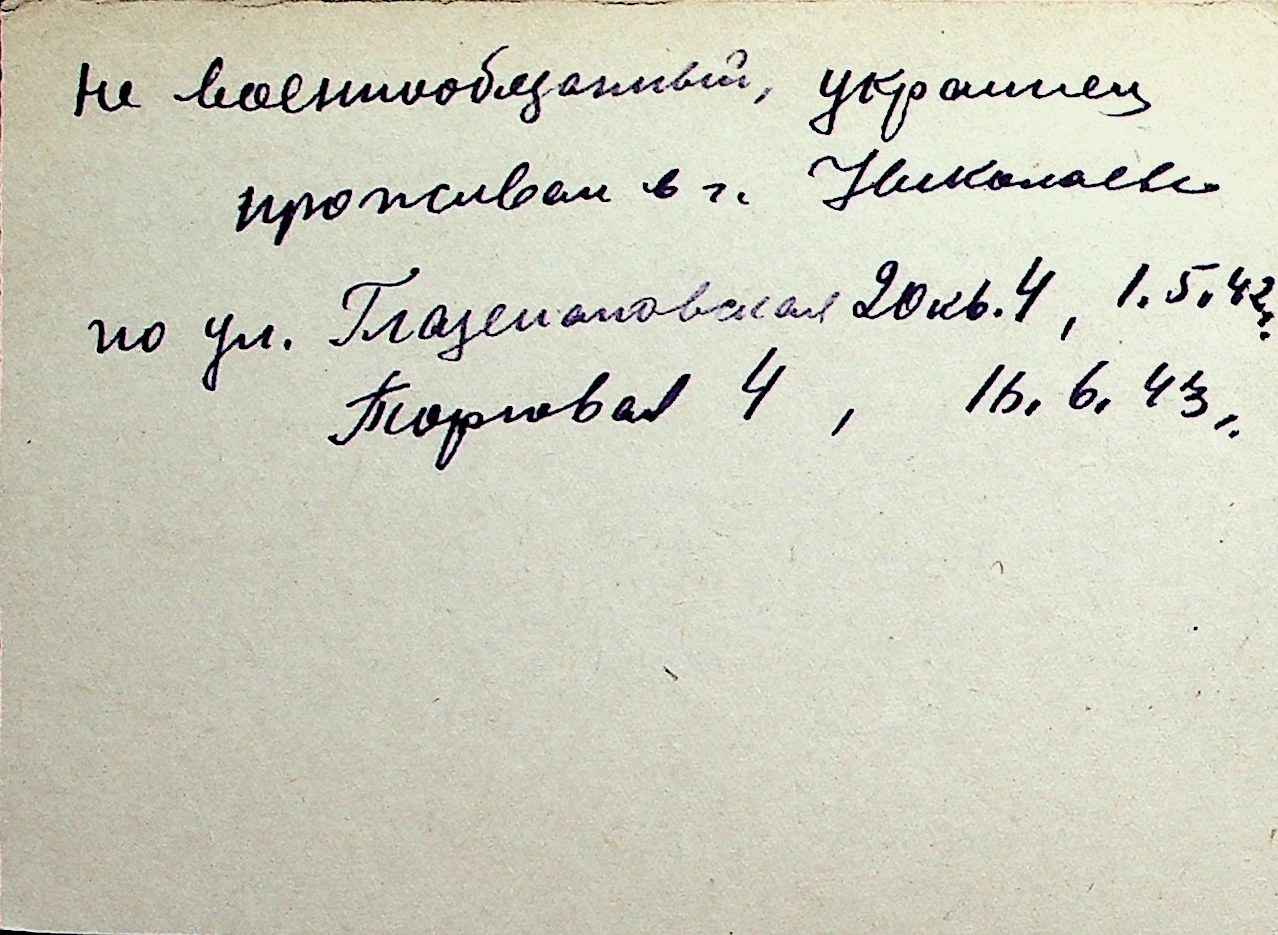 Не военнообязанный, украинец
проживал в г. Николаеве
по ул. Глазенаповская 20 кв. 4, 1.5.42г.
Торговая 4, 6.43г.